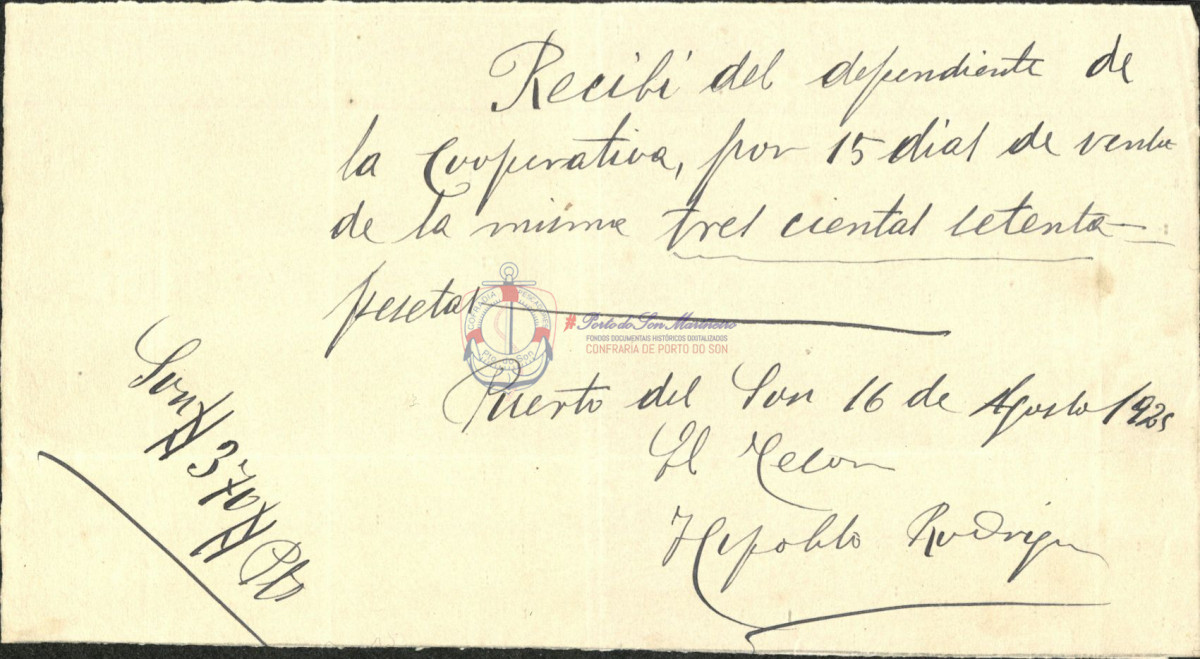 Recibí del dependiente de
la Cooperativa, por 15 dias de venta
de la misma tres cientas setenta
pesetas
Puerto del Son 16 de Agosto 1925
El
Hipolito Rodrigu
Son # 370 # Pts
COFRADIA PESCADORES
Pto. do Son
#Porto do Son Mariñeiro
FONDOS DOCUMENTAIS HISTÓRICOS DIXITALIZADOS
CONFRARÍA DE PORTO DO SON